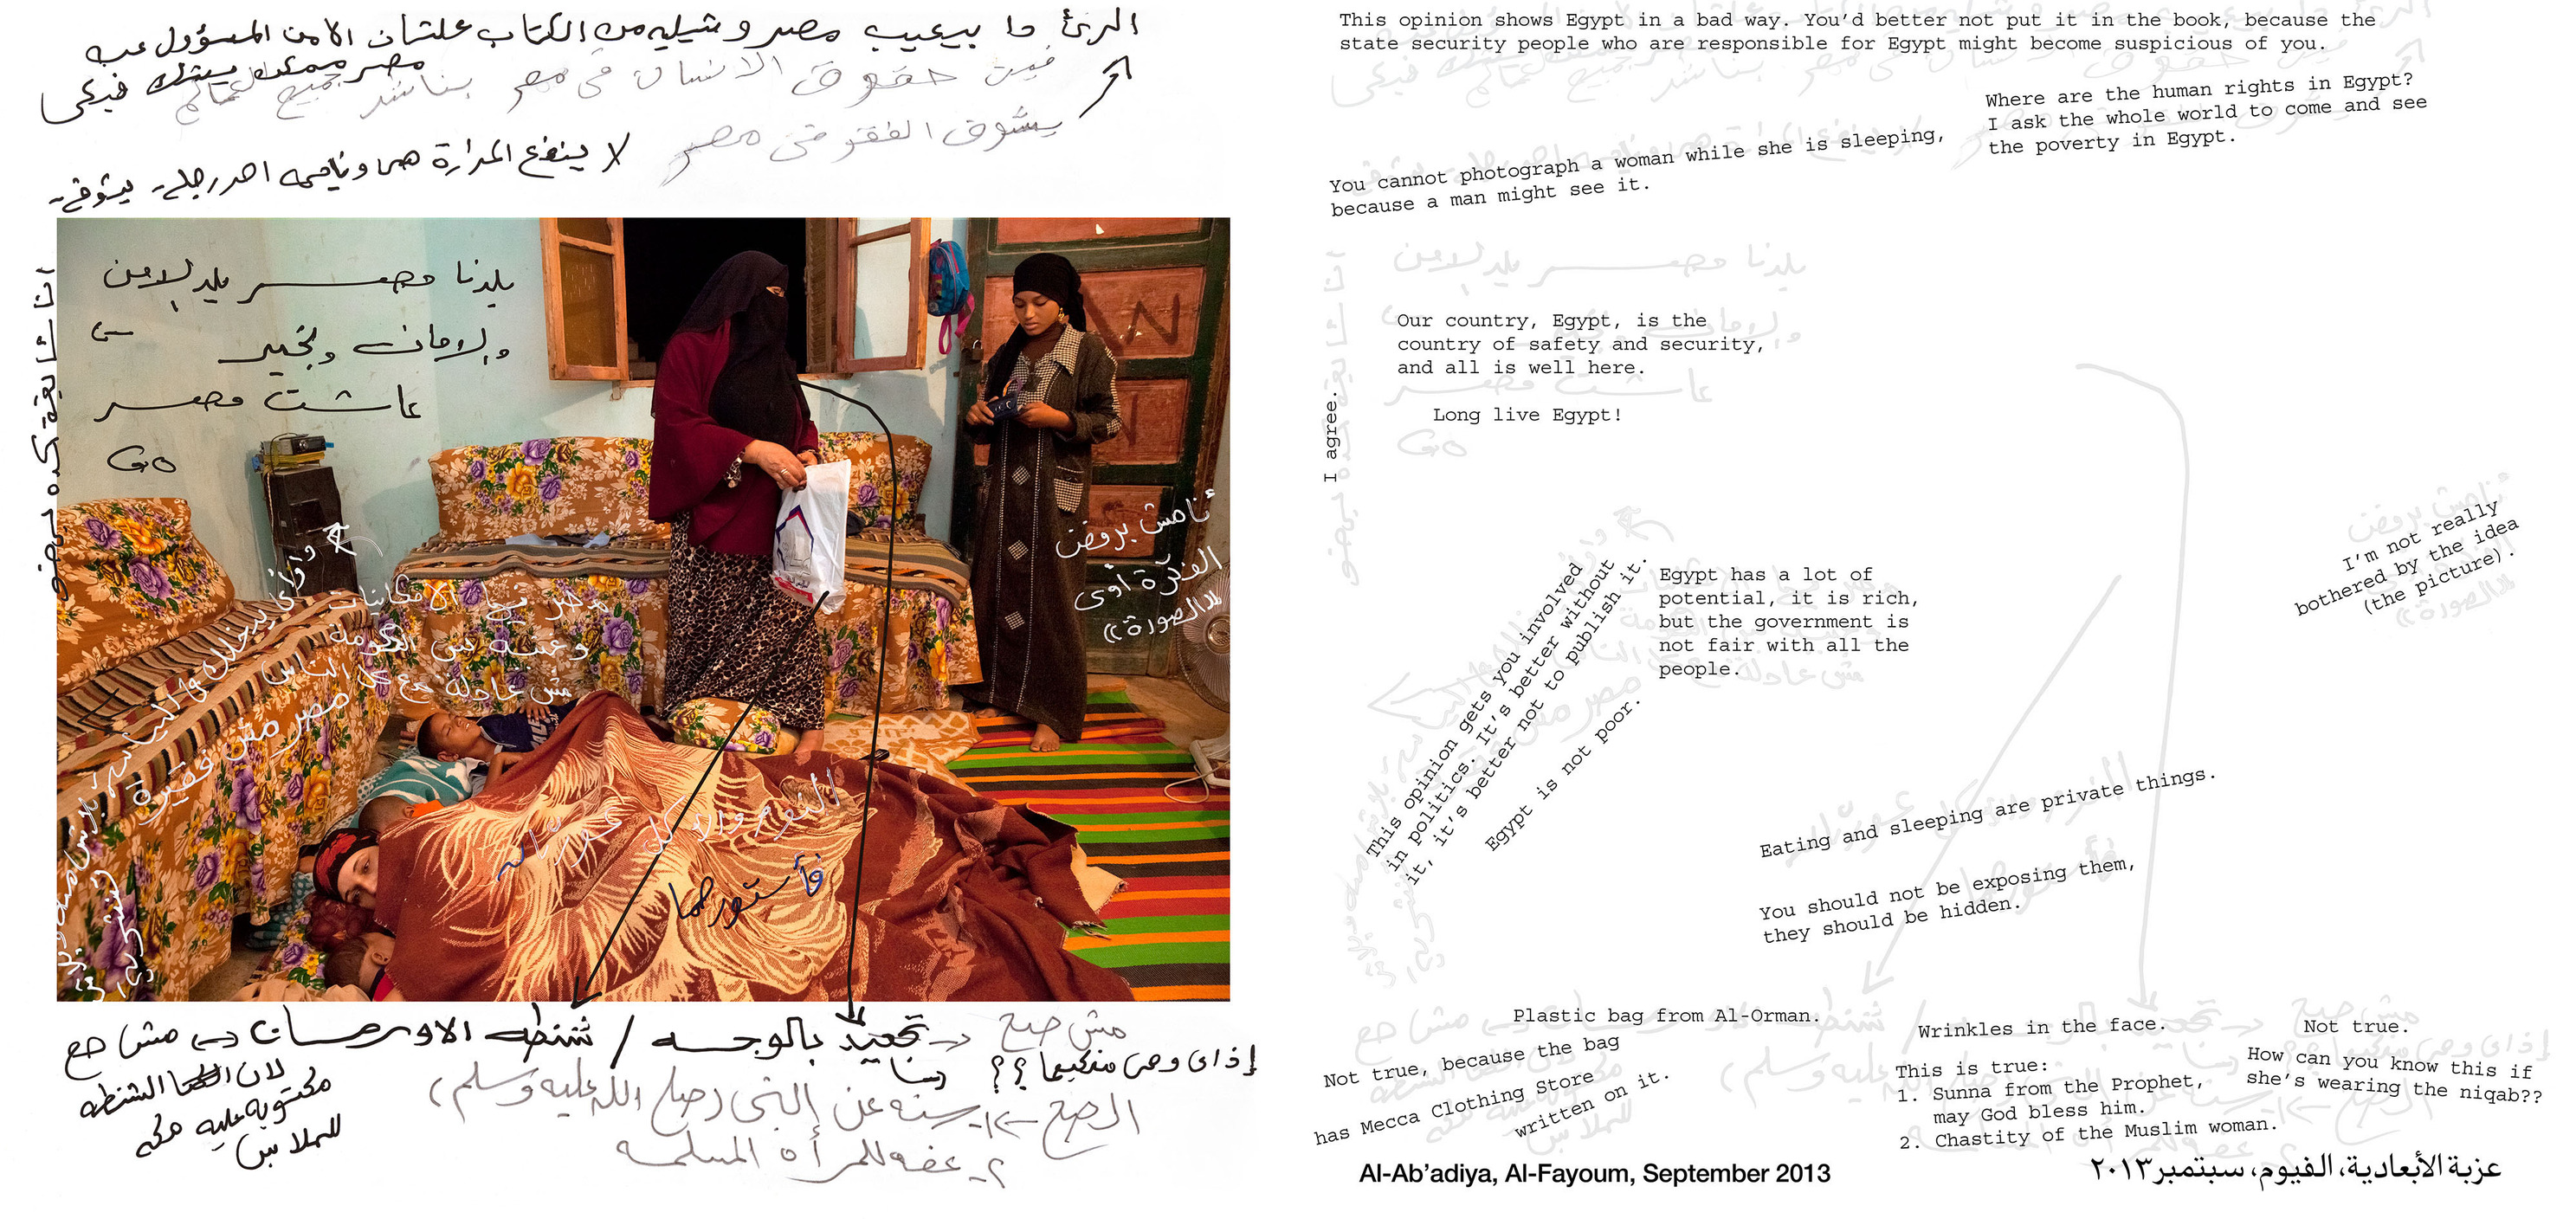 الرئ دا بيعيب مصر وشيليه من الكتاب علشان الامن المسؤول عن
مصر ممكن يشك فيكى
فين حقوق الانسان فى مصر بناشد جميع العالم
يشوف الفقر فى مصر
لا ينفع المرأة هى ونايمه احد رجل يشوفه
بلدنا مصر بلد لامن
ولامان وبخير
عاشت مصر
GO
مصر فيها الامكانيات
وغنية بس الحكومة
مش عادلة مع كل الناس
مصر مش فقيرة
أنا مش برفض
الفكرة أوى
«الصورة»
النوم والاكل عورتان
فأستورهما
تجعيد بالوجه / شنطه الاورمان
مش صح
لان الشنطه
مكتوب عليه مكه
للملابس
مش صح
إذاى وهى منقبها ؟؟
الصح ١- سنه عن النبى (صلى الله عليه وسلم)
٢- عفه للمرأه المسلمه
This opinion shows Egypt in a bad way. You'd better not put it in the book, because the
state security people who are responsible for Egypt might become suspicious of you.
Where are the human rights in Egypt?
I ask the whole world to come and see
the poverty in Egypt.
You cannot photograph a woman while she is sleeping,
because a man might see it.
Our country, Egypt, is the
country of safety and security,
and all is well here.
Long live Egypt!
I agree.
I'm not really
bothered by the idea
(the picture).
This opinion gets you involved
in politics. It's better without
it, it's better not to publish it.
Egypt has a lot of
potential, it is rich,
but the government is
not fair with all the
people.
Egypt is not poor.
Eating and sleeping are private things.
You should not be exposing them,
they should be hidden.
Plastic bag from Al-Orman.
Not true, because the bag
has Mecca Clothing Store
written on it.
Wrinkles in the face.
This is true:
1. Sunna from the Prophet,
may God bless him.
2. Chastity of the Muslim woman.
Not true.
How can you know this if
she's wearing the niqab??
Al-Ab'adiya, Al-Fayoum, September 2013
عزبة الأبعادية، الفيوم، سبتمبر ٢٠١٣